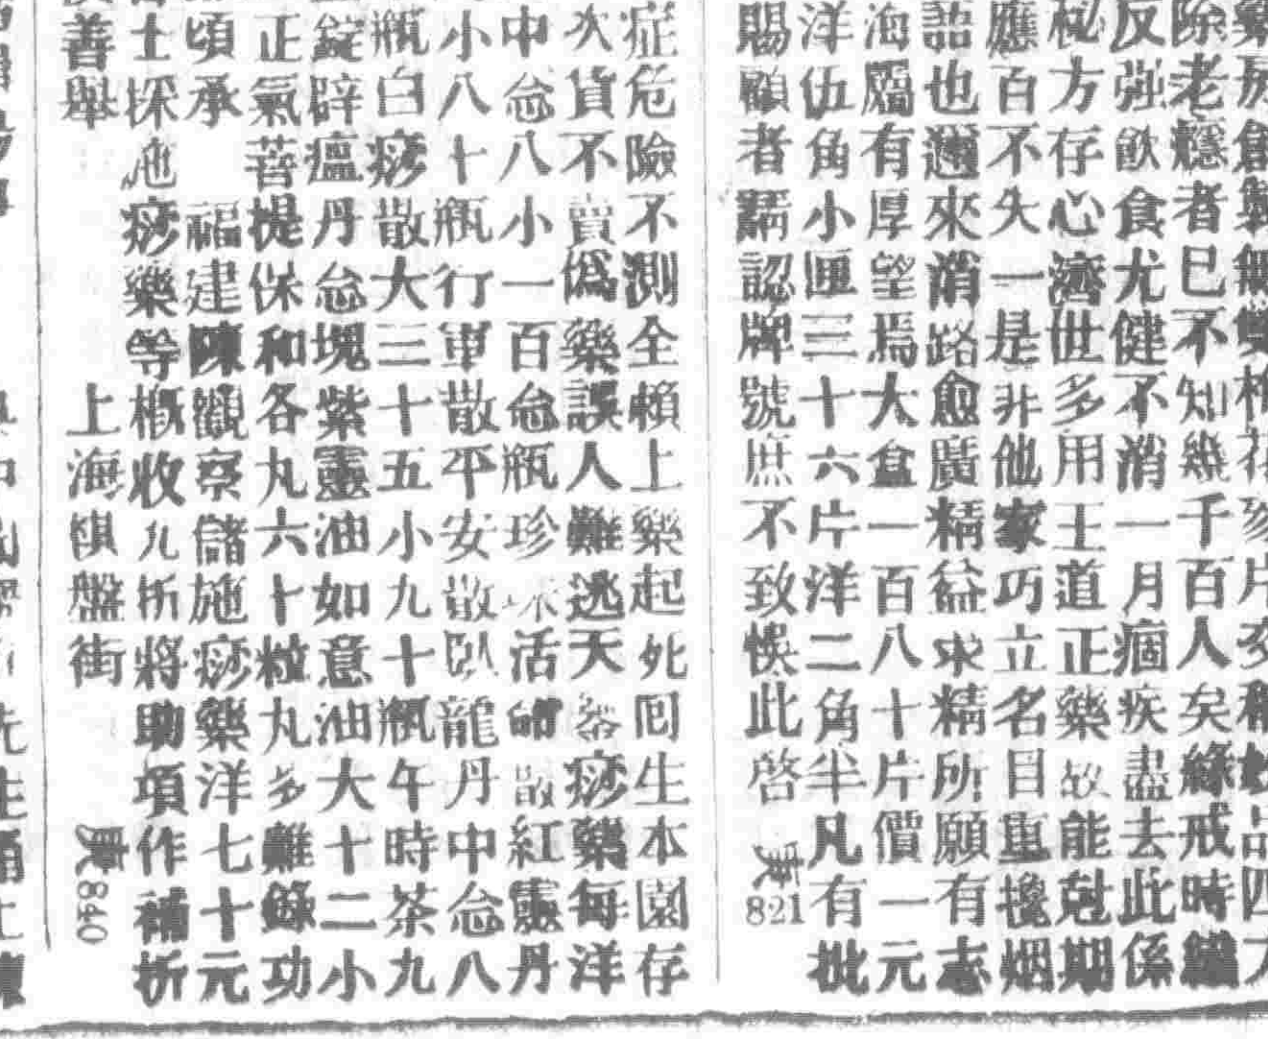 除老癮者已不知幾千百人矣緣戒時纔
反强飲食尤健不消一月痼疾盡去此係
秘方存心濟世多用王道正藥故能尅期
應百不失一是非他家巧立名目重攙烟
語也邇來消路愈廣精益求精所願有志
海屬有厚望焉大盒一百八十片價一元
洋伍角小匣三十六片洋二角半凡有批
賜顧者請認牌號庶不致悞此啓 庚821
症危險不測全賴上藥起死囘生本園存
次貨不賣僞藥誤人難逃天咎痧藥每洋
中念八小一百念瓶珍珠活命散紅靈丹
小八十瓶行軍散平安散臥龍丹中念八
瓶白痧散大三十五小九十瓶午時茶九
錠辟瘟丹念塊紫靈油如意油大十二小
正氣菩提保和各丸六十粒丸多難錄功
頃承 福建陳觀察儲施痧藥洋七十元
士採施痧藥等概收九折將助項作補折
善舉 上海棋盤街 庚840